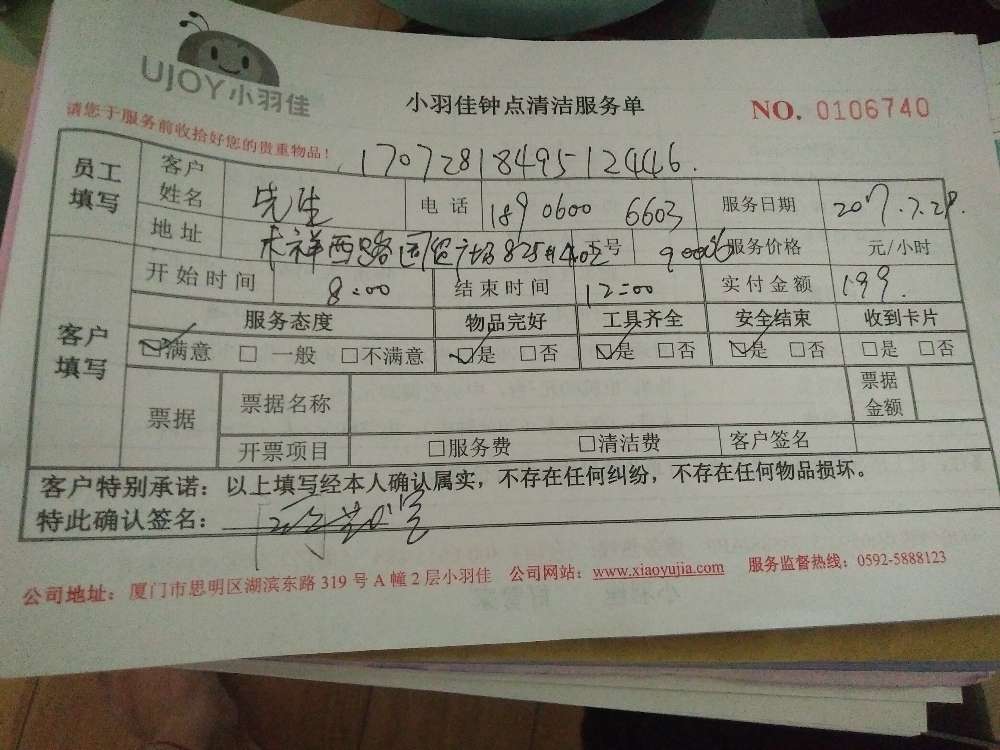 UJOY小羽佳
小羽佳钟点清洁服务单
NO. 0106740
请您于服务前收拾好您的贵重物品!
17072818495124446.
员工填写 客户姓名 先生 电话 189 0600 6603 服务日期 2017.7.28.
地址 号 服务价格 元/小时
客户填写 开始时间 8:00 结束时间 12:00 实付金额 199.
服务态度 物品完好 工具齐全 安全结束 收到卡片
☑满意 □一般 □不满意 ☑是 □否 ☑是 □否 ☑是 □否 □是 □否
票据 票据名称 票据金额
开票项目 □服务费 □清洁费 客户签名
客户特别承诺：以上填写经本人确认属实，不存在任何纠纷，不存在任何物品损坏。
特此确认签名：
公司地址：厦门市思明区湖滨东路 319 号 A 幢 2 层小羽佳 公司网站：www.xiaoyujia.com 服务监督热线：0592-5888123